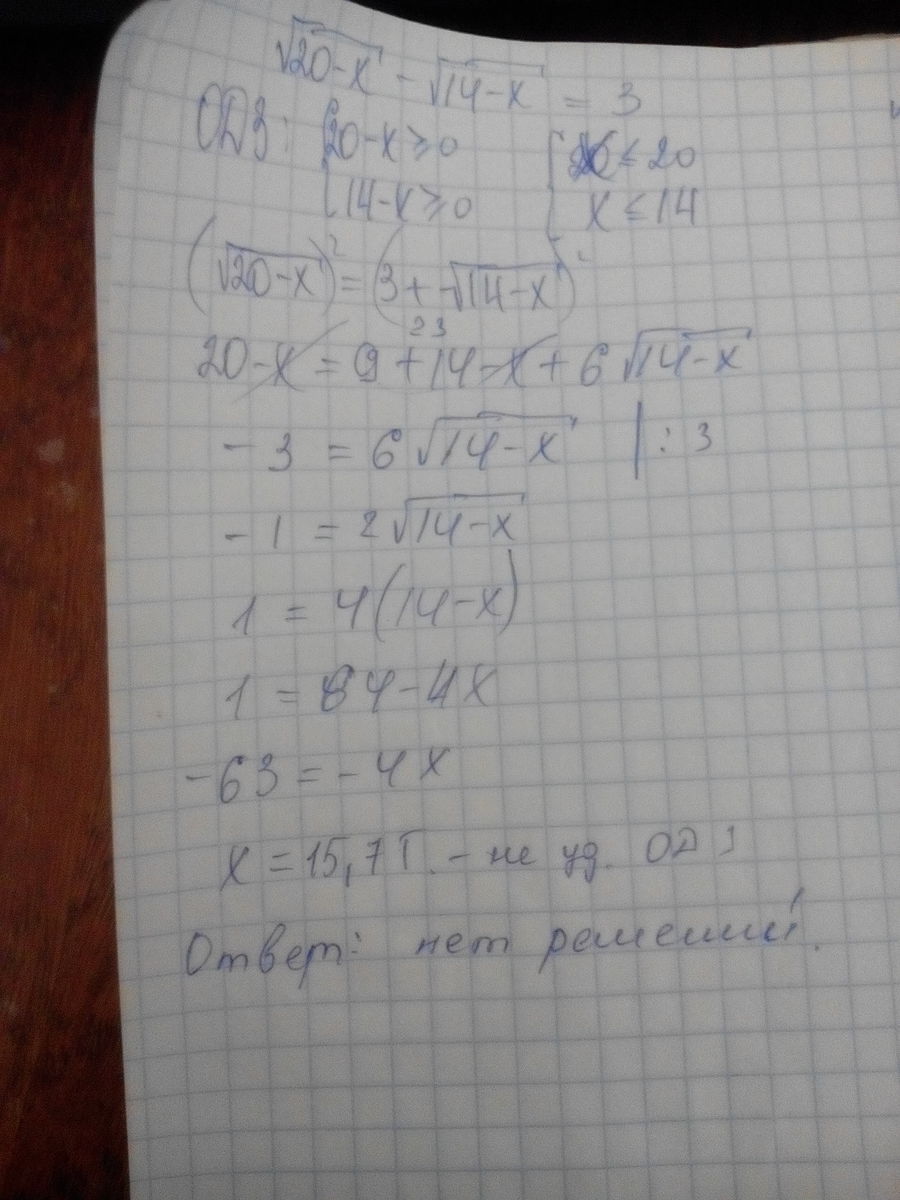 √20-x - √14-x = 3
ОДЗ: {20-x ≥ 0 {x ≤ 20
{14-x ≥ 0 x ≤ 14
(√20-x)² = (3+√14-x)²
23
20-x = 9+14-x+6√14-x
-3 = 6√14-x | : 3
-1 = 2√14-x
1 = 4(14-x)
1 = 64-4x
-63 = -4x
x = 15,75. - не уд. ОДЗ
Ответ: нет решений.